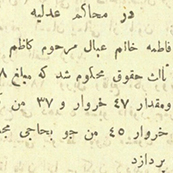 در محاکم عدلیه
فاطمه خانم عیال مرحوم کاظم
ثالث حقوق محکوم شد که مبلغ ۸
ومقدار ٤٧ خروار و ۳۷ من
خروار ٤٥ من جو بحاجی
بردازد